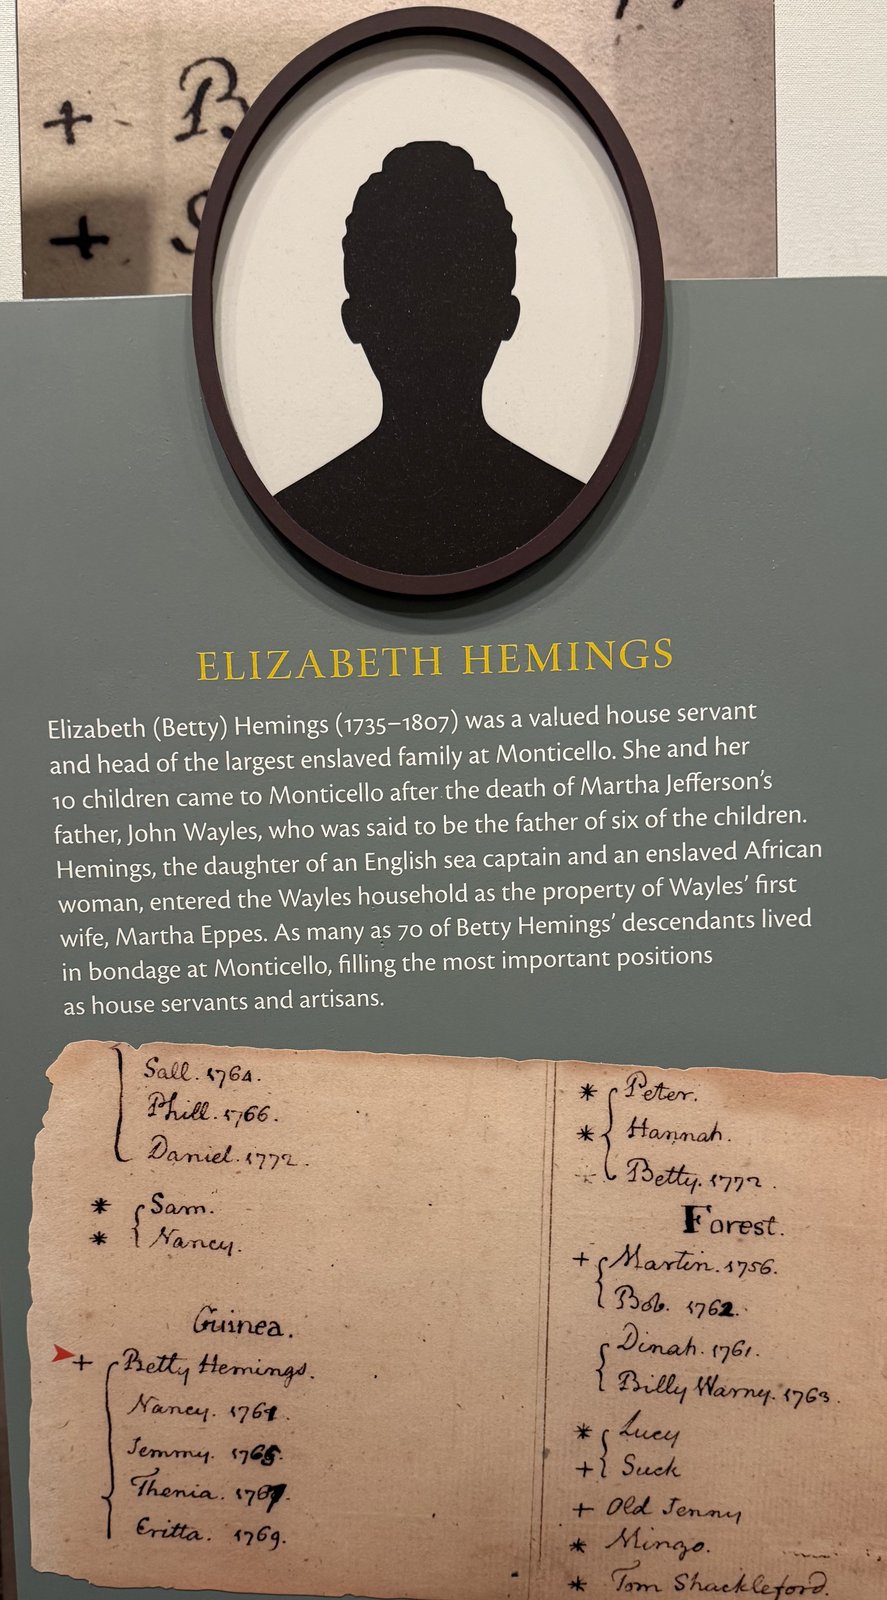 + B
+ S
ELIZABETH HEMINGS
Elizabeth (Betty) Hemings (1735–1807) was a valued house servant
and head of the largest enslaved family at Monticello. She and her
10 children came to Monticello after the death of Martha Jefferson's
father, John Wayles, who was said to be the father of six of the children.
Hemings, the daughter of an English sea captain and an enslaved African
woman, entered the Wayles household as the property of Wayles' first
wife, Martha Eppes. As many as 70 of Betty Hemings' descendants lived
in bondage at Monticello, filling the most important positions
as house servants and artisans.
Sall. 1764.
Phill. 1766.
Daniel. 1772.
* Sam.
* Nancy.
Guinea.
+ Betty Hemings.
Nancy. 1761.
Jemmy. 1765.
Thenia. 1767.
Critta. 1769.
* Peter.
* Hannah.
Betty. 1772.
Forest.
+ Martin. 1756.
Bob. 1762.
Dinah. 1761.
Billy Warny. 1763.
* Lucy
+ Suck
+ Old Jenny
* Mingo.
* Tom Shackleford.